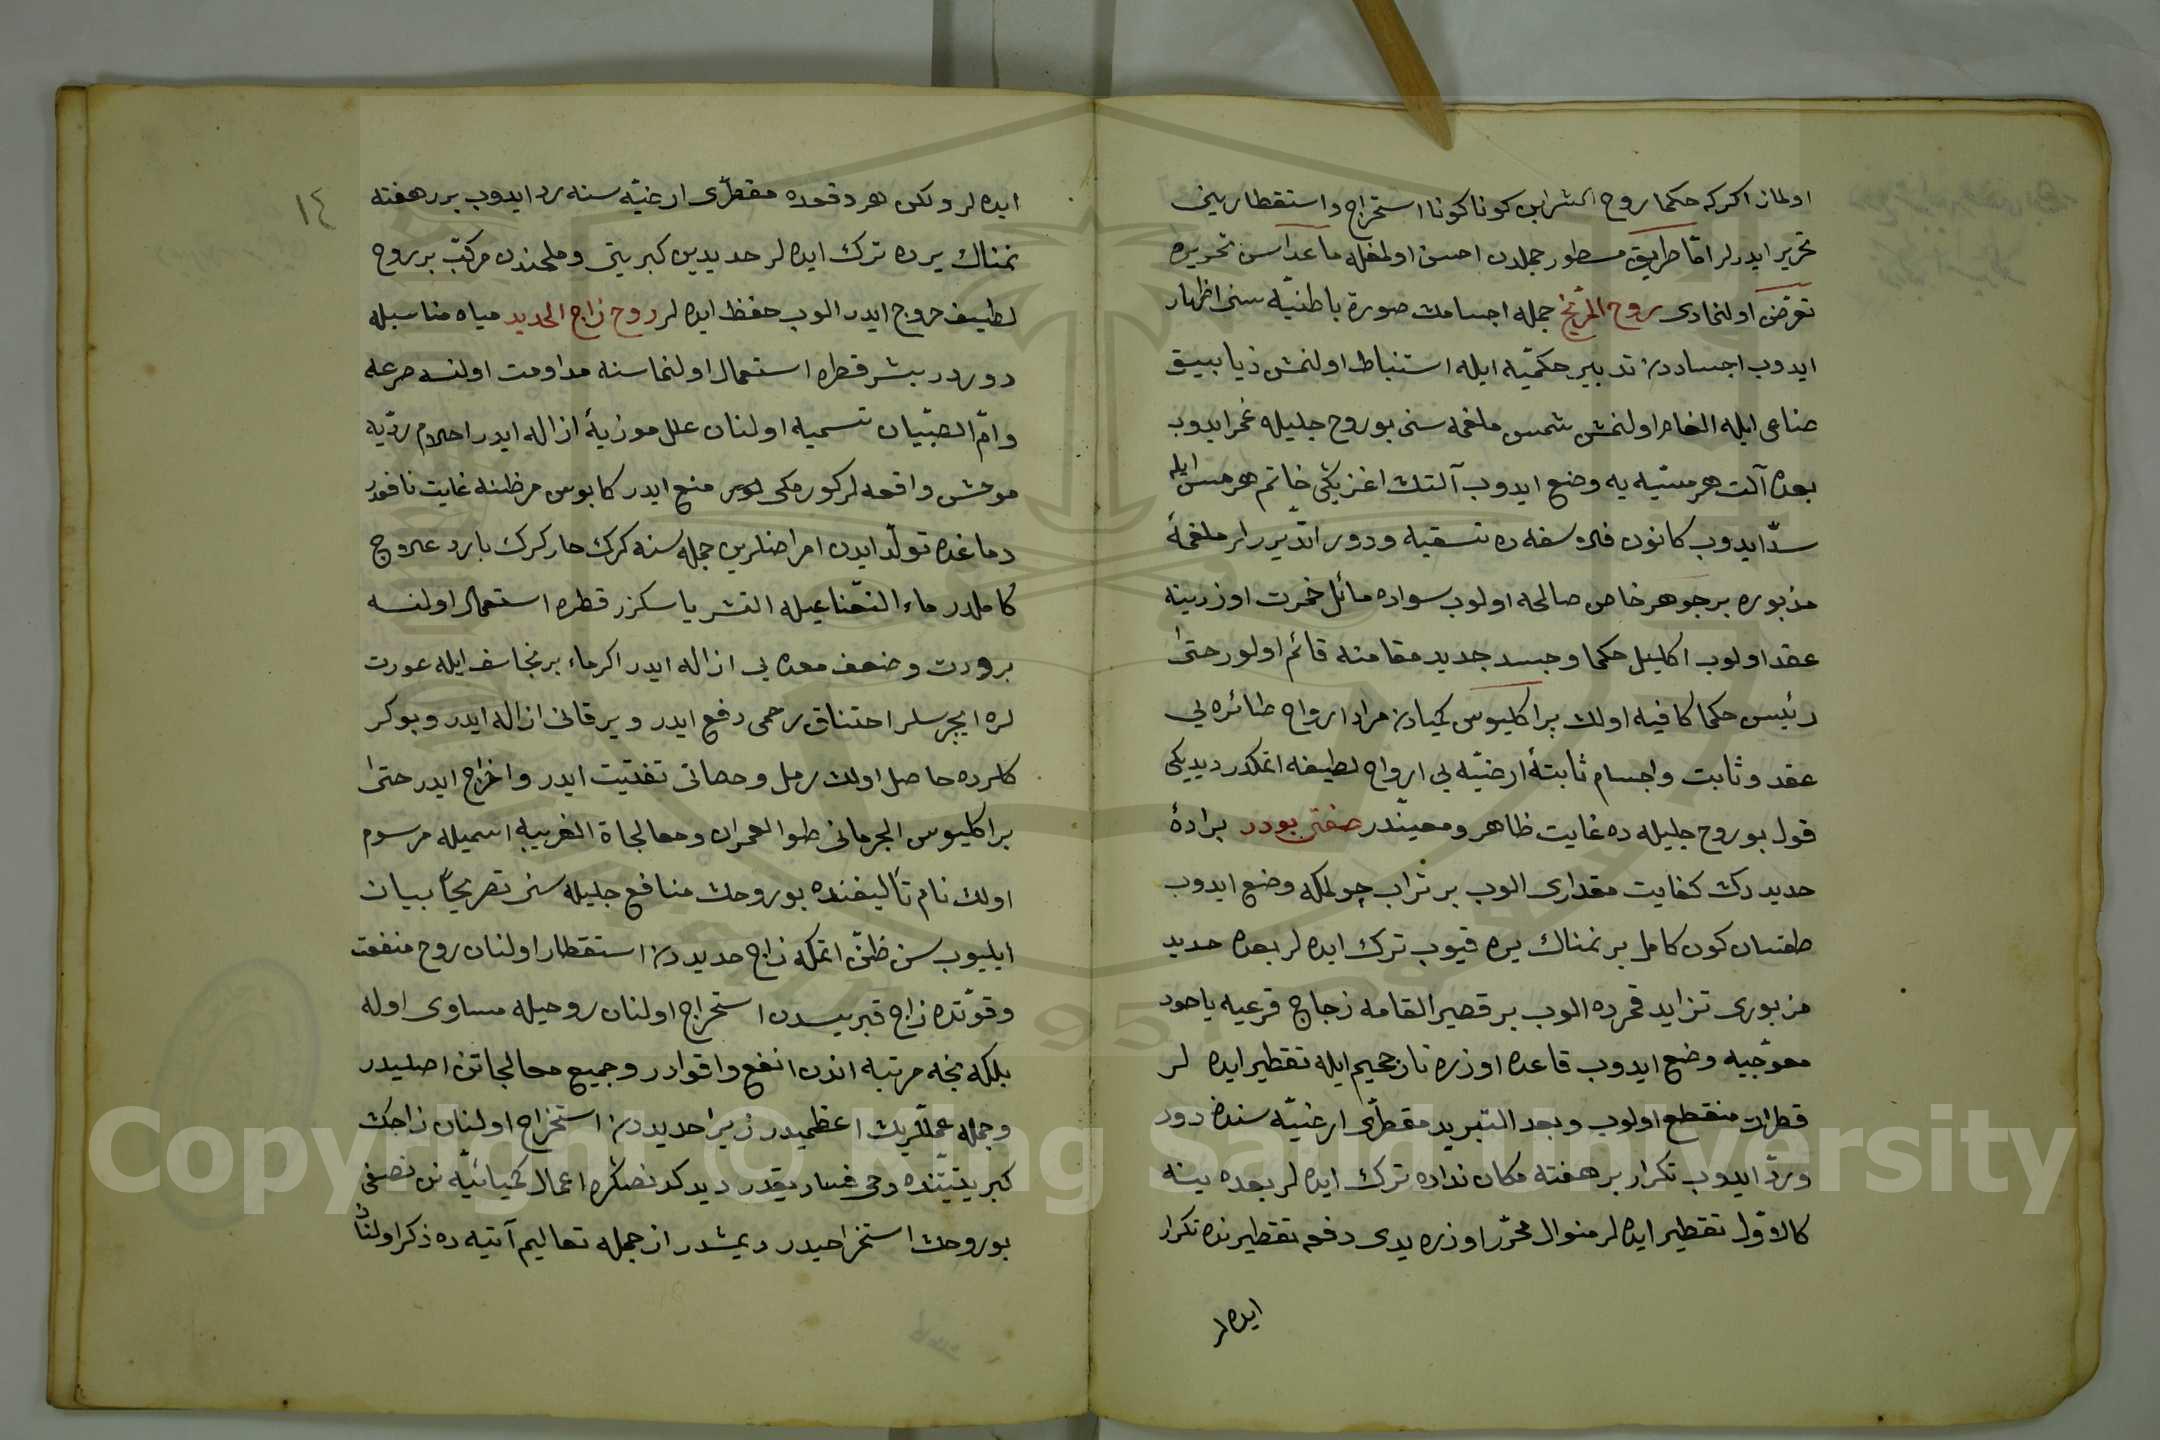 اولماز اكركه حكما روح الشرابی كوناكونا استخراج و استقطارینی
تحریر ایدرلر امّا طریق مسطور جمله‌دن احسن اولمغله ماعداسن تحریره
تعرّض اولنمادی روح المرّیخ جمله اجسامك صورة باطنیّه سنی اظهار
ایدوب اجساددن تدبیر حكمیّه ایله استنباط اولنمش زیابیق
صناعی ایله الغام اولنمش شمس ملغمه سنی بو روح جلیله غمر ایدوب
بعده آلت هرمسیّه یه وضع ایدوب آلتك اغزیكی خاتم هرمس ایله
سدّ ایدوب كانون فلاسفه ده تسقیه و دور اتدیررلر ملغمهٔ
مذبوره بر جوهر خاص صالحه اولوب سواده مائل خمرت اوزرینه
عقد اولوب اكلیل حكما و جسد جدید مقامنه قائم اولور حتیٰ
رئیس حكما كافیه اولان براكلیوس كیمیادن مراد ارواح طائره یی
عقد و ثابت و اجسام ثابتهٔ ارضیّه یی ارواح لطیفه اتمكدر دیدیكی
قول بو روح جلیله ده غایت ظاهر و معیّندر صفتی بودر برادهٔ
حدیددن كفایت مقداری الوب بر تراب چولمكه وضع ایدوب
طقسان كون كامل بر نمناك یره قیوب ترك ایده لر بعده حدید
مزبوری تزاید قمرده الوب بر قصیر القامه زجاج قرعیه یاخود
معوّجیه وضع ایدوب قاعده اوزره نار جحیم ایله تقطیر ایده لر
قطرات منقطع اولوب و بعد التبرید مقطّری ارضیّه سنه دور
و ردّ ایدوب تكرار بر هفته مكان نداده ترك ایده لر بعده ینه
كالاوّل تقطیر ایده لر منوال محرّر اوزره یدی دفعه تقطیرنده تكرار
ایده لر
١٤
ایده لر و لكن هر دفعده مقطّری ارضیّه سنه رد ایدوب برر هفته
نمناك یرده ترك ایده لر حدیدین كبریتی و ملحندن مركّب بر روح
لطیف خروج ایدر الوب حفظ ایده لر روح زاج الحدید میاه مناسبله
دوردر بشر قطره استعمال اولنماسنه مداومت اولنسه صرعه
و امّ الصبّیان تسمیه اولنان علل موزیهٔ ازاله ایدر احلام ردّیه
موحش واقعه لر كورمكی منع ایدر كابوس مرظنه غایت نافعدر
دماغده تولّد ایدن امراضلرین جمله سنه كرك حار كرك بارد علاج
كاملدر ماء النعنا عیله التشر یا سكزر قطره استعمال اولنسه
برودت و ضعف معده یی ازاله ایدر اكر ماء برنجاسف ایله عورت
لره ایچرسلر احتناق رحمی دفع ایدر و یرقانی ازاله ایدر و بوكر
كلرده حاصل اولان رمل و حصاتی تفتیت ایدر و اخراج ایدر حتیٰ
براكلیوس الجرمانی طوالعمران و معالجاة الغریبه اسمیله مرسوم
اولان نام تألیفنده بو روحك منافع جلیله سنی تصریحاً بیان
ایلیوب سن ظنّ اتمكه زاج حدیددن استقطار اولنان روح منفعت
و قوّتده زاج قبریسدن استخراج اولنان روحیله مساوی اوله
بلكه نجه مرتبه اندن انفع و اقوادر و جمیع معالجاتن اصلیدر
و جمله عمللریك اعظمیدر زیرا حدیددن استخراج اولنان زاجك
كبریتیّتنده دخی فساد یقدر دیدكدنصكره اعمال كیمیائیّه نن نصفی
بو روحك استخراجیدر دیمشدر از جمله تعالیم آتیه ده ذكر اولنان
Copyright © King Saud University
1957